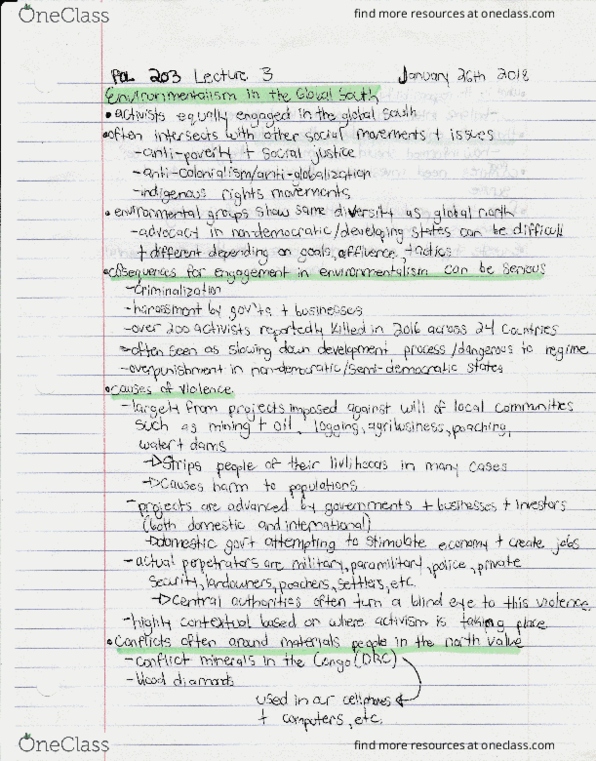 OneClass
find more resources at oneclass.com
POL 203 Lecture 3 January 26th 2018
Environmentalism in the Global South
• activists equally engaged in the global south
• often intersects with other social movements + issues
- anti-poverty + social justice
- anti-colonialism/anti-globalization
- indigenous rights movements
• environmental groups show same diversity as global north
- advocacy in non-democratic/developing states can be difficult
+ different depending on goals, affluence, tactics
• consequences for engagement in environmentalism can be serious
- criminalization
- harassment by gov'ts + businesses
- over 200 activists reportedly killed in 2016 across 24 countries
- often seen as slowing down development process/dangerous to regime
- overpunishment in non-democratic/semi-democratic states
• causes of violence
- largely from projects imposed against will of local communities
such as mining + oil, logging, agribusiness, poaching,
water + dams
→ Strips people of their livlihoods in many cases
→ Causes harm to populations
- projects are advanced by governments + businesses + investors
(both domestic and international)
→ domestic gov't attempting to stimulate economy + create jobs
- actual perpetrators are military, paramilitary, police, private
security, landowners, poachers, settlers, etc.
→ Central authorities often turn a blind eye to this violence
- highly contextual based on where activism is taking place
• Conflicts often around materials people in the north value
- conflict minerals in the Congo (DRC)
- blood diamonds
used in our cellphones
+ computers, etc.
OneClass
find more resources at oneclass.com